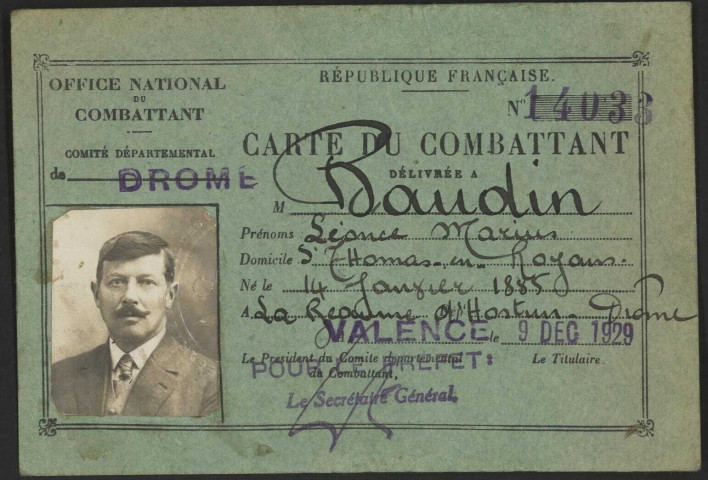 OFFICE NATIONAL
DU
COMBATTANT
COMITÉ DÉPARTEMENTAL
de DROME
RÉPUBLIQUE FRANÇAISE.
N° 14033
CARTE DU COMBATTANT
DÉLIVRÉE A
M Baudin
Prénoms Léonce Marius
Domicile St Thomas-en-Royans.
Né le 14 Janvier 1885
A La Beaume d'Hostun Drôme
VALENCE le 9 DEC 1929
Le President du Comite departemental
du Combattant,
Le Titulaire.
POUR LE PREFET:
Le Secrétaire Général,